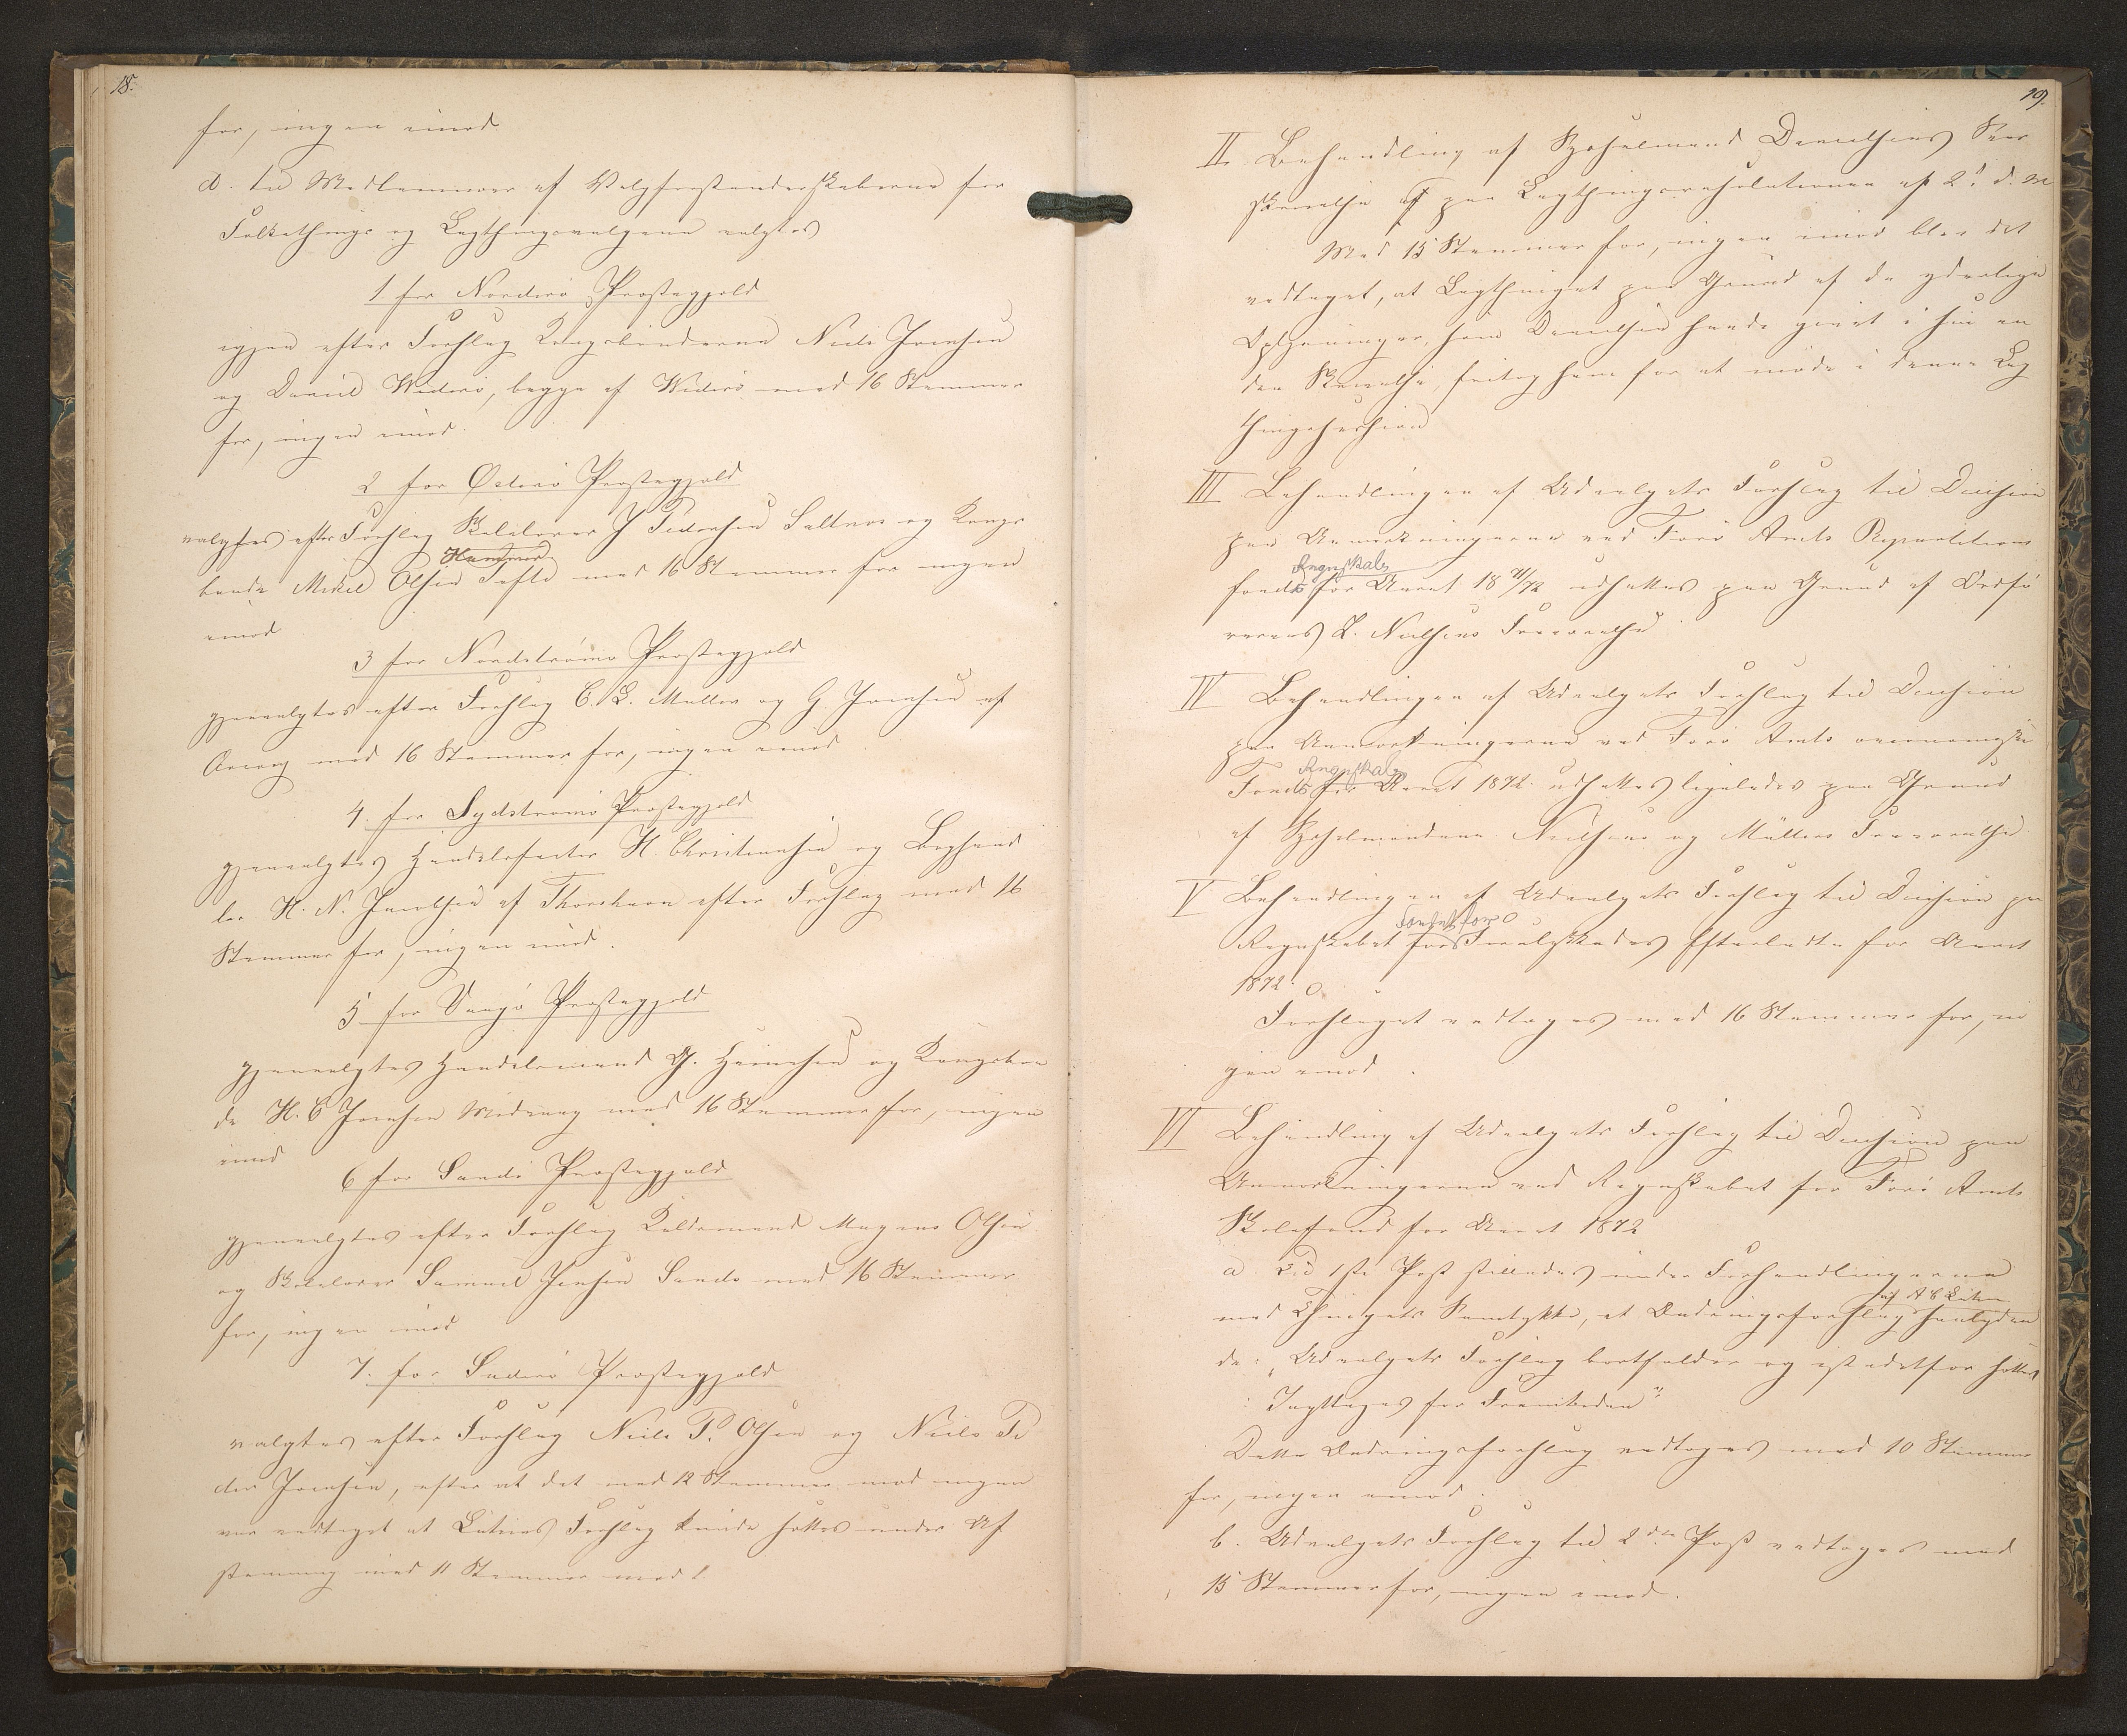 18.
for, ingen imod.
d. til Medlemmer af Valgforstanderskaberne for
Folkethings og Lagthingsvalgene valgtes
1 for Norderø Præstegjeld
igjen efter Forslag Kongsbønderne Niels Joensen
og Daniel Widerø, begge af Widerø med 16 Stemmer
for, ingen imod.
2 for Østerø Præstegjeld
valgtes efter Forslag Skolelærer J Pedersen Saltnes og Kongs
bonde Mikel Olsen Tofte med 16 Stemmer for ingen
imod
3 for Nordstrømø Præstegjeld
gjenvalgtes efter Forslag C. L. Müller og G. Joensen af
Qvivig med 16 Stemmer for, ingen imod.
4. for Sydstrømø Præstegjeld
gjenvalgtes Handelsfacter H. Christiansen og Boghand
ler H. N. Jacobsen af Thorshavn efter Forslag med 16
Stemmer for, ingen imod.
5 for Vaagø Præstegjeld
gjenvalgtes Handelsmand G. Heinesen og Kongsbon
de H. C Joensen Midvaag med 16 Stemmer for, ingen
imod
6 for Sandø Præstegjeld
gjenvalgtes efter Forslag Magnus Olsen
og Skolelærer Samuel Jensen Sand med 16 Stemmer
for, ingen imod
7. for Suderø Præstegjeld
valgtes efter Forslag Niels P. Olsen og Niels Pe
der Joensen, efter at det med 12 Stemmer mod ingen
var vedtaget at Forslag kunde sættes under Af
stemning med 11 Stemmer mod 1
19.
II Behandling af Sysselmand Danielsens Skri
velse af paa Lagthingsresolutionen af 2d. d. M
Med 15 Stemmer for, ingen imod blev det
vedtaget, at Lagthinget paa Grund af de yderlige
Oplysninger, som Danielsen havde givet i sin an
den Skrivelse, fritog ham for at møde i denne Lag
thingssession
III Behandlingen af Udvalgets Forslag til Decision
paa Anmærkningerne ved Færø Amts Repartitions
Regnskab
fonds for Aaret 18 71/72 udsattes paa Grund af Ordfø
rerens L. Nielsens Fraværelse
IV Behandlingen af Udvalgets Forslag til Decision
paa Anmærkningerne ved Færø Amts oeconomiske
Regnskab
Fonds for Aaret 1872 udsattes ligeledes paa Grund
af Sysselmændene Nielsens og Müllers Fraværelse
V Behandlingen af Udvalgets Forslag til Decision paa
Fondet for
Regnskabet for Forulykkedes Efterladte for Aaret
1872.
Forslaget vedtoges med 16 Stemmer for, in
gen imod.
VI Behandling af Udvalgets Forslag til Decision paa
Anmærkningerne ved Regnskabet for Færø Amts
Skolefond for Aaret 1872
a. Ved 1ste Post stilledes under Forhandlingerne
med Thingets Samtykke, et Ændringsforslag saalyden
de: „Udvalgets Forslag bortfalder og istedetfor sættes
: Iagttages for Fremtiden“.
Dette Ændringsforslag vedtoges med 10 Stemmer
for, ingen imod.
b. Udvalgets Forslag til 2den Post vedtoges med
15 Stemmer for, ingen imod.